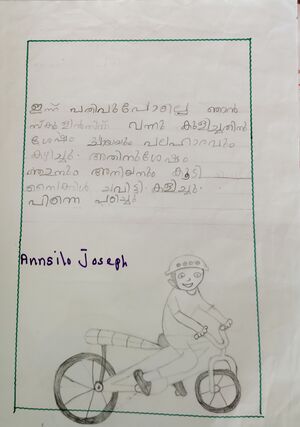 ഇന്ന് പതിവുപോലെ ഞാൻ
സ്കൂളിൽനിന്ന് വന്നു കുളിച്ചതിന്
ശേഷം ചായയും പലഹാരവും
കഴിച്ചു. അതിനുശേഷം
ഞാനും അനിയനും കൂടി
സൈക്കിൾ ചവിട്ടി കളിച്ചു.
പിന്നെ പഠിച്ചു
Annsilo Joseph